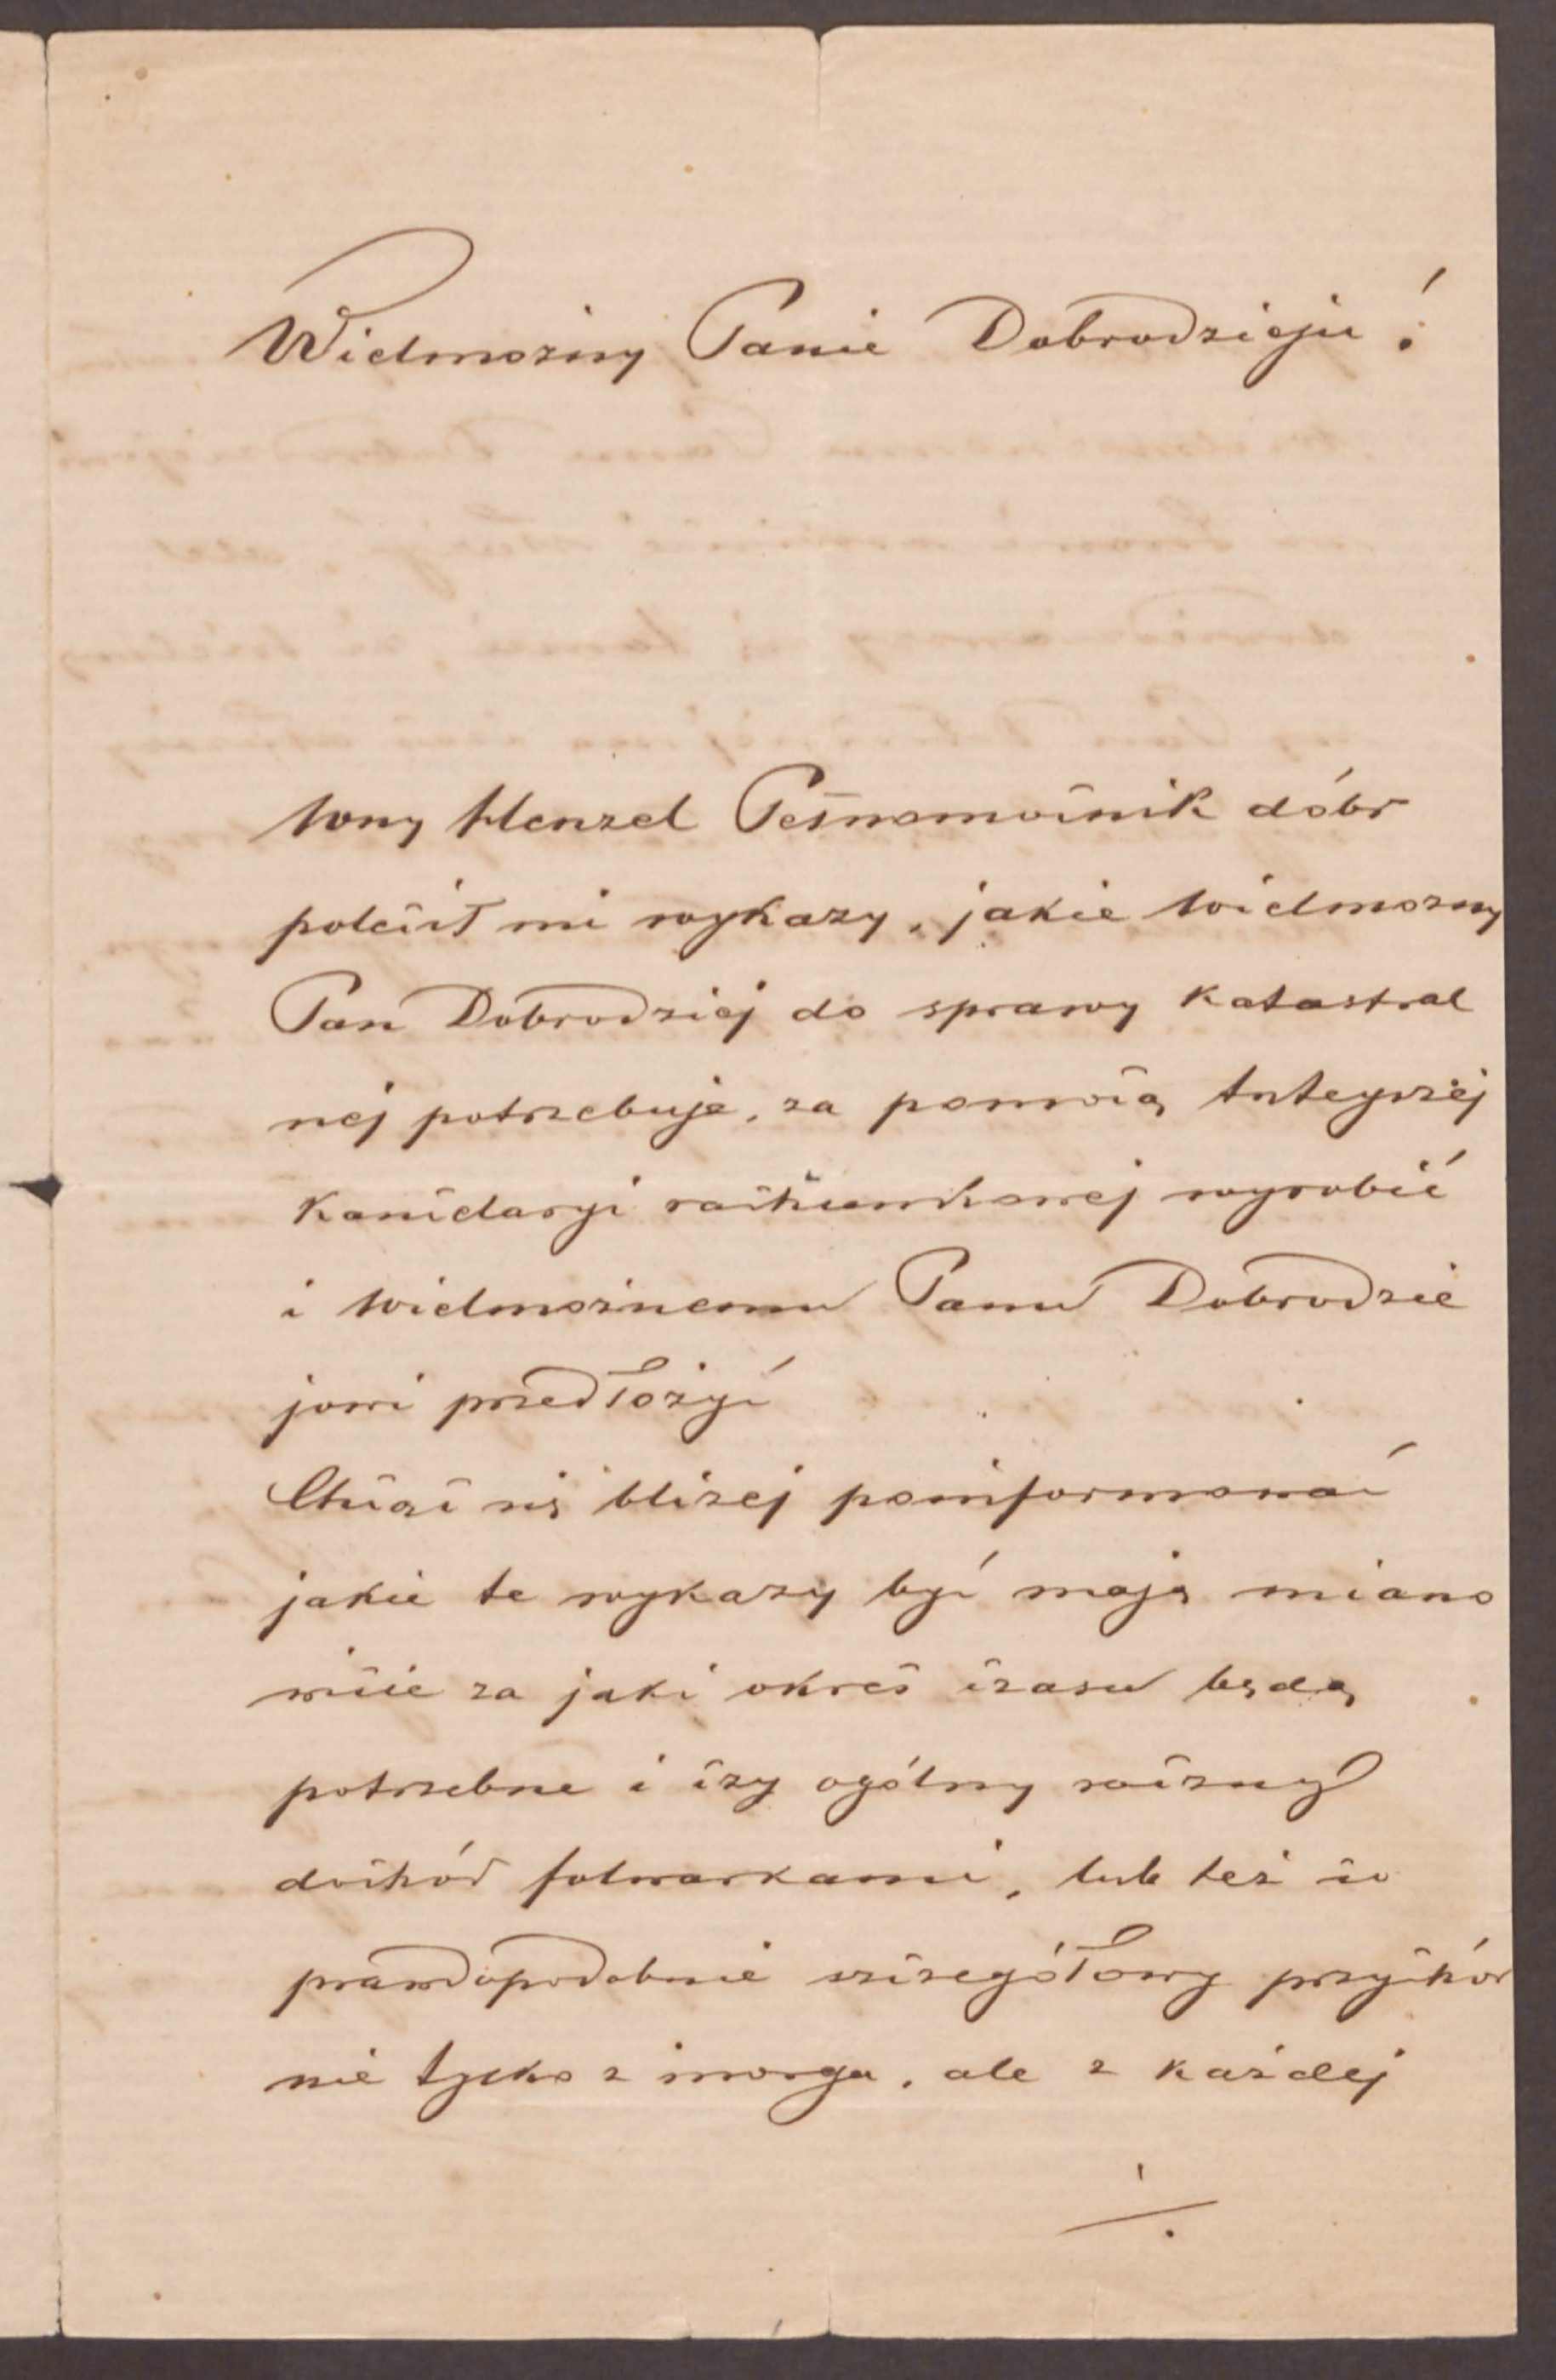 Wielmożny Panie Dobrodzieju!
Wny Henzel Pełnomocnik dóbr
polecił mi wykazy, jakie Wielmożny
Pan Dobrodziej do sprawy Katastral
nej potrzebuje, za pomocą tutejszej
Kancelaryi rachunkowej wyrobić
i Wielmożnemu Panu Dobrodzie
jowi przedłożyć
Chcąc się bliżej poinformować
jakie te wykazy być mają miano
wicie za jaki okres czasu będą
potrzebne i czy ogólny roczny
dochód folwarkami, lub też co
prawdopodobnie szczegółowy przychód
nie tylko z morga, ale z każdej
./.